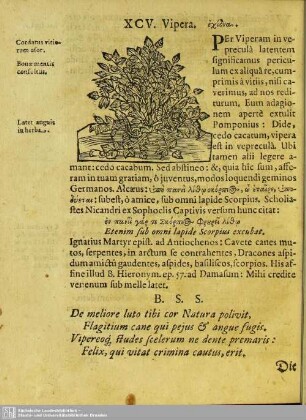 XCV. Vipera. ἔχιδνα.
Cordatus vitiorum osor.
Latet anguis
in herba.
PEr Viperam in vepreculâ latentem
significamus periculum
ex aliquâ re, cum
primis à vitiis, nisi caverimus,
ad nos rediturum.
Eum adagionem
apertè extulit
Pomponius: Dide,
cedo cacatum, vipera
est in vepreculâ. Ubi
tamen alii legere amane:
cedo cacabum. Sed abstineo: &, quia hîc sum, afferam
in tuam gratiam, ô juventus, modos loquendi geminos
Germanos. Alcæus:
subest, ô amice, sub omni lapide Scorpius. Scholiastes
Nicandri ex Sophoclis Captivis versum hunc citat:
Etenim sub omni lapide Scorpius excubat.
Ignatius Martyr epist. ad Antiochenos: Cavete canes mutos,
serpentes, in arctum se contrahentes, Dracones aspidum
amictu gaudentes, aspides, basiliscos, scorpios. His affine
illud B. Hieronym. ep. 57. ad Damasum: Mihi credite
venenum sub melle latet.
B. S. S.
De meliore luto tibi cor Natura polivit,
Flagitium cane qui pejus & angue fugis.
Vipereoq́; studes scelerum ne dente premaris:
Felix, qui vitat crimina cautus, erit.
Die